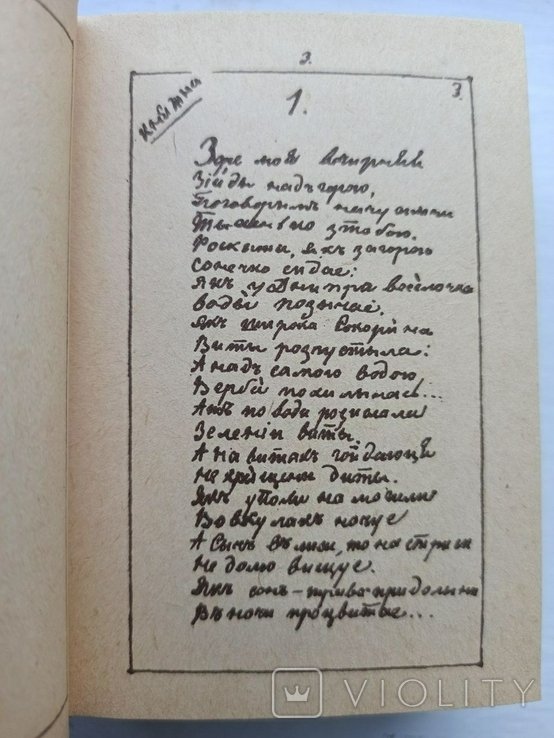 2.
3.
1.
Зоре моя вечирняя
Зійды надъ горою,
Поговорымъ
зъ тобою.
Роскажы, якъ за горою
сонечко сидае:
якъ у Днипра веселочка
воды позычае,
якъ широка Сокорина
Виты розпустыла:
А надъ самою водою
Верба похылылась...
Ажъ по води розислала
Зелении виты.
А на витяхъ гойдаюця
Не хрещени диты.
Якъ у поли на могыли
Вовкулакъ ночуе
А Сычь въ лиси, то на стриси
Не долю вищуе.
Якъ сонъ-трава при долыни
Въ ночи процвитае...
VIOLITY